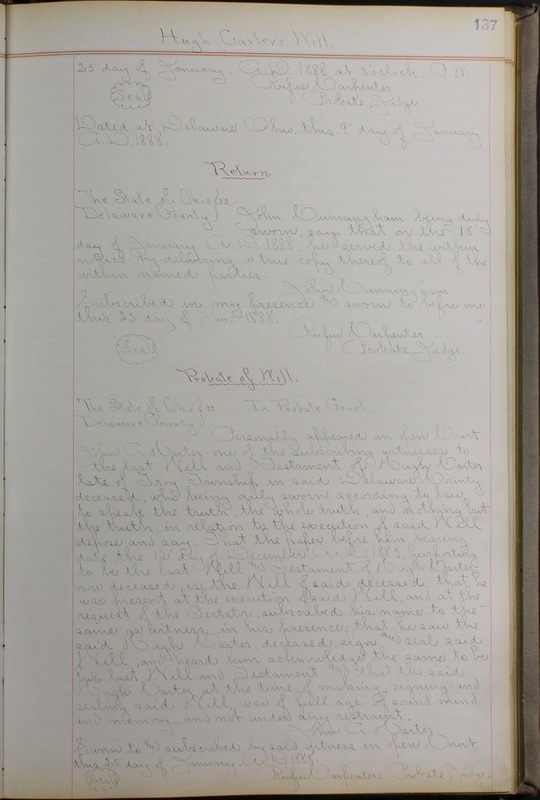 137
Hugh Carter's Will.
25 day of January. A.D. 1888, at 2 o'clock. P.M.
Rufus Carpenter
Probate Judge
(Seal)
Dated at Delaware Ohio, this 9" day of January
A.D. 1888.
Return.
The State of Ohio } ss.
Delaware County } John Cunningham being duly
sworn, says that on the 18"
day of January. A.D. 1888, he served the within
notice by delivering a true copy thereof to all of the
within named parties.
John Cunningham
Subscribed in my presence and sworn to before me
this 25 day of Jan. 1888.
Rufus Carpenter
Probate Judge.
(Seal)
Probate of Will.
The State of Ohio } ss In Probate Court.
Delaware County }
Personally appeared in open Court
John C. one of the subscribing witnesses to
the last Will and Testament of Hugh Carter
late of Troy Township in said Delaware County
deceased; who being duly sworn according to law,
to speak the truth the whole truth, and nothing but
the truth, in relation to the execution of said Will
depose and say: That the paper before him bearing
date the day of December A.D. purporting
to be the last Will and Testament of Hugh Carter
now deceased, is the Will of said deceased that he
was present at the execution of said Will, and at the
request of the Testator, subscribed his name to the
same as witness in his presence; that he saw the
said Hugh Carter, deceased sign and seal said
Will, and heard him acknowledge the same to be
his last Will and Testament and that the said
Hugh Carter at the time of making, signing and
sealing said Will, was of full age of sound mind
and memory, and not under any restraint.
John C.
Sworn to and subscribed by said witness in open Court,
this 25 day of January. A.D. 1888
(Seal) Rufus Carpenter Probate Judge.